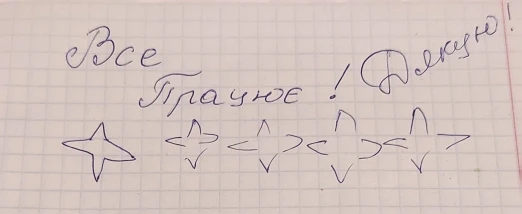 Все
Працює! Дякую!